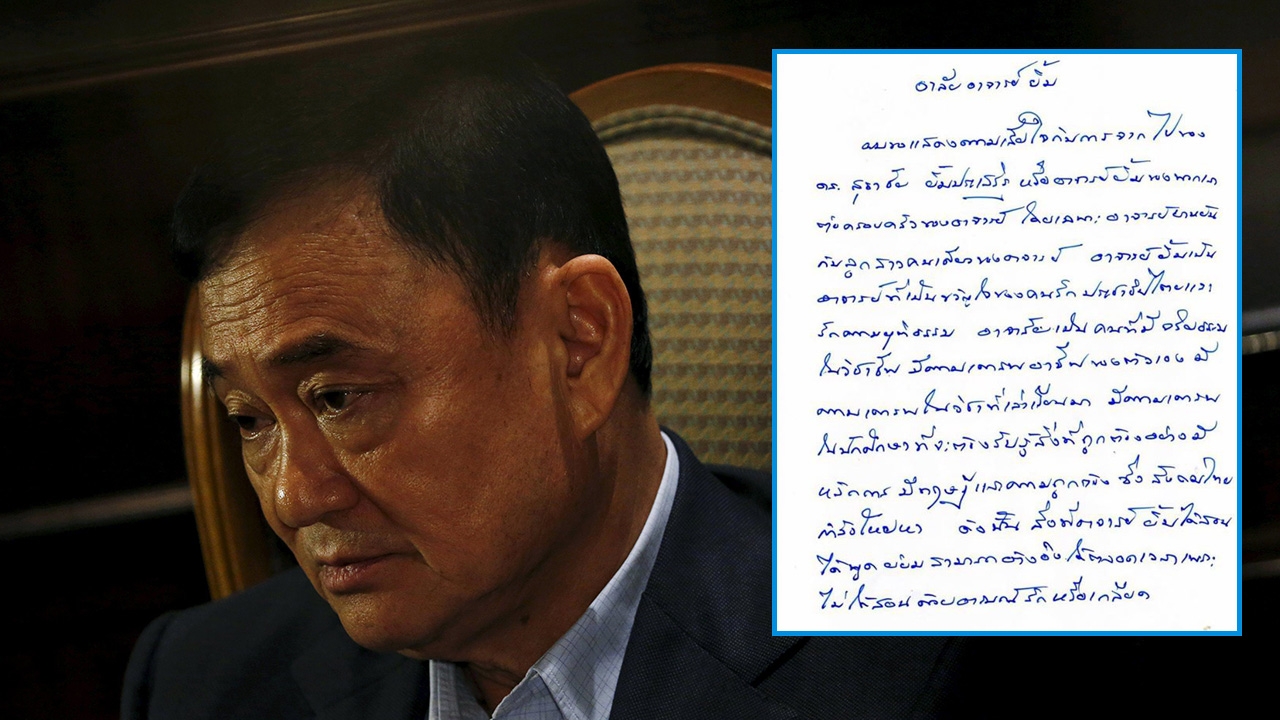 อาลัย อาจารย์ ยิ้ม
ผมขอแสดงความเสียใจกับการจากไปของ
ดร. สุธาชัย ยิ้มประเสริฐ หรืออาจารย์ยิ้มของพวกเรา
ต่อครอบครัวของอาจารย์ โดยเฉพาะอาจารย์
กับลูกสาวคนเดียวของอาจารย์ อาจารย์ยิ้มเป็น
อาจารย์ที่เป็นขวัญใจของคนรักประชาธิปไตยและ
รักความยุติธรรม อาจารย์เป็นคนที่มีจริยธรรม
ในวิชาชีพ มีความเคารพอาชีพของตัวเอง มี
ความเคารพในวิชาที่เล่าเรียนมา มีความเคารพ
ในนักศึกษาที่จะต้องรับรู้สิ่งที่ถูกต้องอย่างมี
หลักการ มีทฤษฎีและความถูกต้อง ซึ่งสังคมไทย
กำลังโหยหา ดังนั้น สิ่งที่อาจารย์ยิ้มได้สอน
ได้พูด ย่อมสามารถอ้างอิงได้ตลอดเวลาเพราะ
ไม่ได้สอนด้วยอารมณ์รักหรือเกลียด